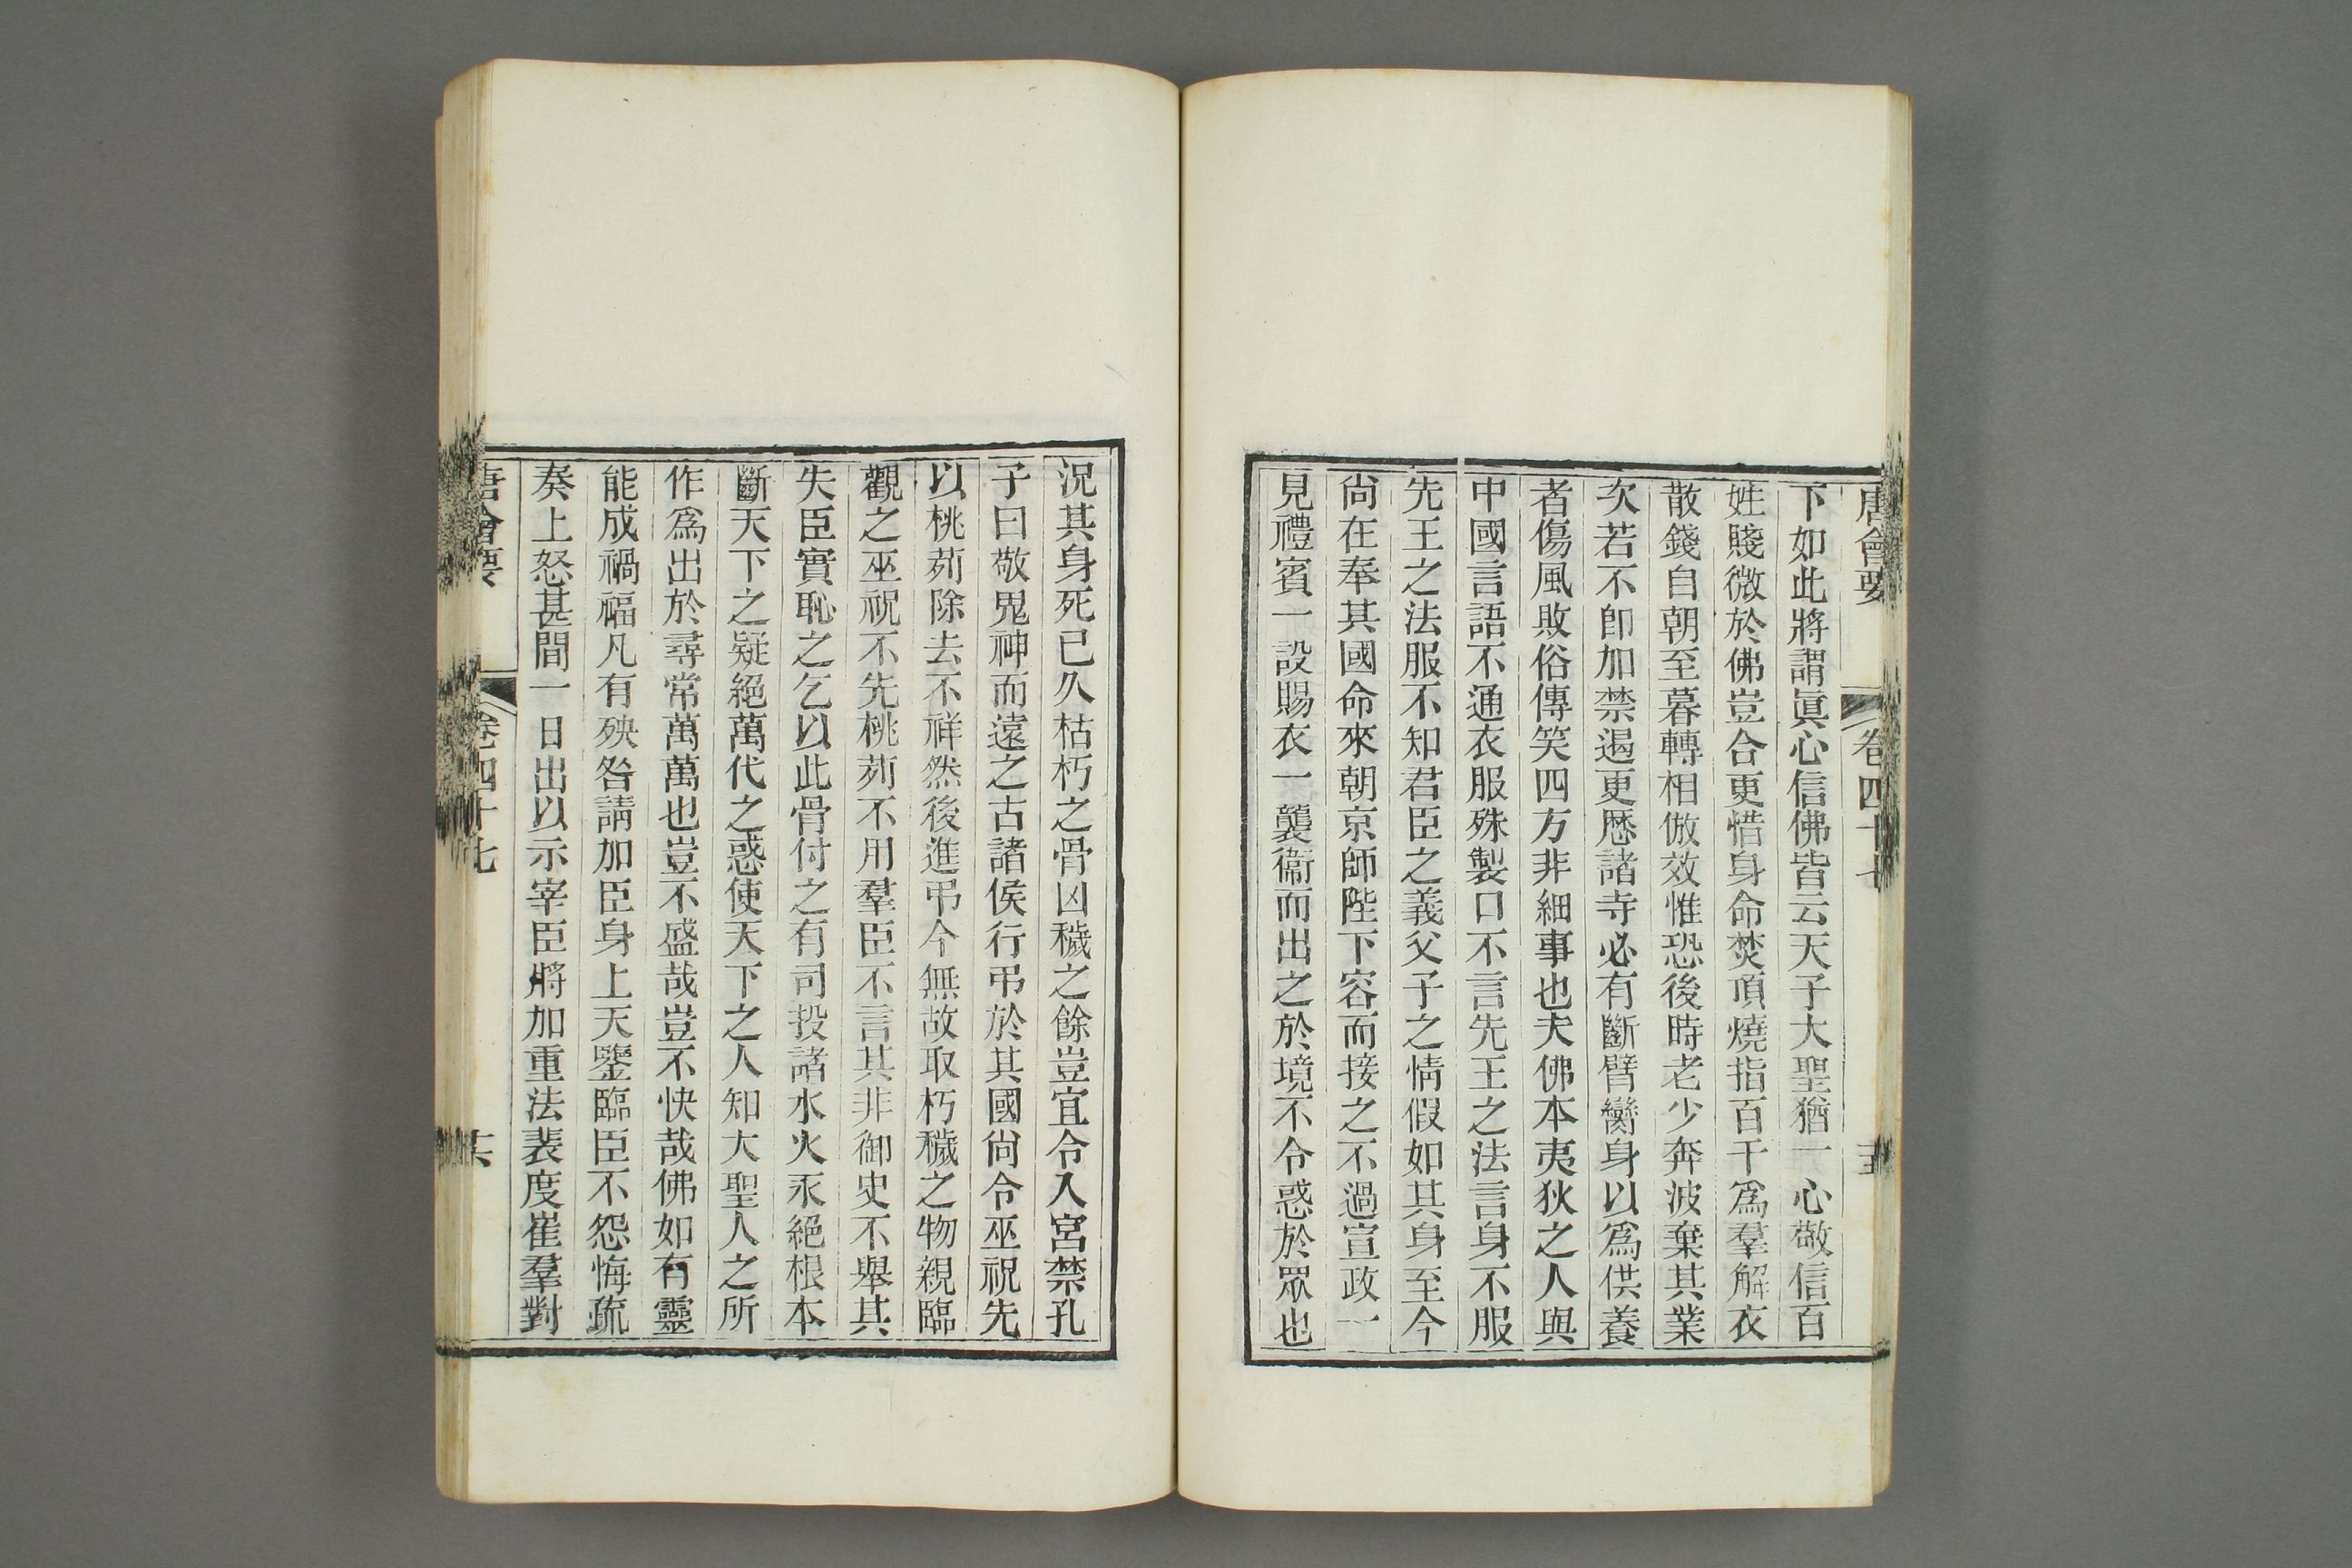 唐會要 卷四十七
下如此將謂眞心信佛皆云天子大聖猶一心敬信百
姓賤微於佛豈合更惜身命焚頂燒指百千爲羣解衣
散錢自朝至暮轉相倣效惟恐後時老少奔波棄其業
次若不卽加禁遏更歷諸寺必有斷臂臠身以爲供養
者傷風敗俗傳笑四方非細事也夫佛本夷狄之人與
中國言語不通衣服殊製口不言先王之法言身不服
先王之法服不知君臣之義父子之情假如其身至今
尚在奉其國命來朝京師陛下容而接之不過宣政一
見禮賓一設賜衣一襲衞而出之於境不令惑於眾也
況其身死已久枯朽之骨凶穢之餘豈宜令入宮禁孔
子曰敬鬼神而遠之古諸侯行弔於其國尚令巫祝先
以桃茢除去不祥然後進弔今無故取朽穢之物親臨
觀之巫祝不先桃茢不用羣臣不言其非御史不舉其
失臣實恥之乞以此骨付之有司投諸水火永絕根本
斷天下之疑絕萬代之惑使天下之人知大聖人之所
作爲出於尋常萬萬也豈不盛哉豈不快哉佛如有靈
能成禍福凡有殃咎請加臣身上天鑒臨臣不怨悔疏
奏上怒甚間一日出以示宰臣將加重法裴度崔羣對
唐會要 卷四十七